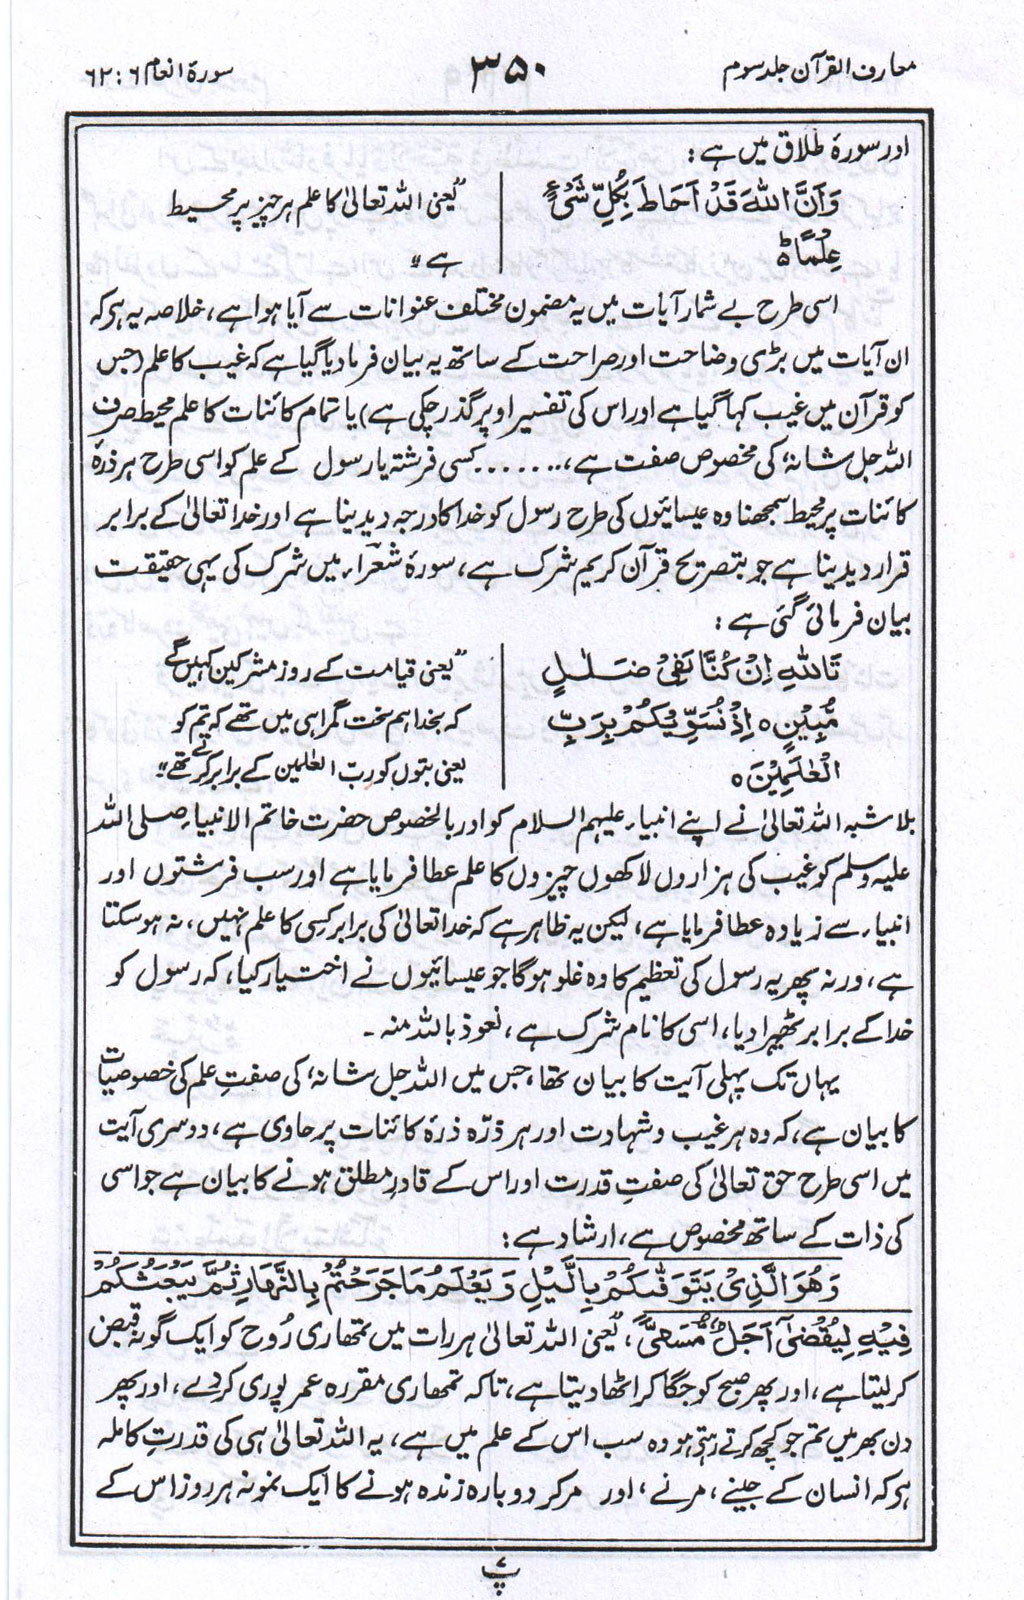 معارف القرآن جلد سوم
۳۵۰
سورۃ انعام ۶ : ۶۲
اور سورۂ طلاق میں ہے :
وَ اَنَّ اللّٰهَ قَدْ اَحَاطَ بِكُلِّ شَیْءٍ
عِلْمًا ۵
"یعنی اللہ تعالیٰ کا علم ہر چیز پر محیط
ہے "
اسی طرح بے شمار آیات میں یہ مضمون مختلف عنوانات سے آیا ہوا ہے، خلاصہ یہ ہر کہ
ان آیات میں بڑی وضاحت اور صراحت کے ساتھ یہ بیان فرما دیا گیا ہے کہ غیب کا علم (جس
کو قرآن میں غیب کہا گیا ہے اور اس کی تفسیر اوپر گذر چکی ہے) یا تمام کائنات کا علم محیط صرف
اللہ جل شانہٗ کی مخصوص صفت ہے، ....... کسی فرشتہ یا رسول کے علم کو اسی طرح ہر ذرۂ
کائنات پر محیط سمجھنا وہ عیسائیوں کی طرح رسول کو خدا کا درجہ دیدینا ہے اور خدا تعالیٰ کے برابر
قرار دیدینا ہے جو بتصریح قرآن کریم شرک ہے، سورۂ شعراء میں شرک کی یہی حقیقت
بیان فرمائی گئی ہے :
تَاللّٰهِ اِنْ كُنَّا لَفِیْ ضَلٰلٍ
مُّبِیْنٍ ۵ اِذْ نُسَوِّیْكُمْ بِرَبِّ
الْعٰلَمِیْنَ ۵
"یعنی قیامت کے روز مشرکین کہیں گے
کہ بخدا ہم سخت گمراہی میں تھے کہ تم کو
یعنی بتوں کو رب العٰلمین کے برابر کرتے تھے"
بلا شبہ اللہ تعالیٰ نے اپنے انبیاء علیہم السلام کو اور بالخصوص حضرت خاتم الانبیاء صلی اللہ
علیہ وسلم کو غیب کی ہزاروں لاکھوں چیزوں کا علم عطا فرمایا ہے اور سب فرشتوں اور
انبیاء سے زیادہ عطا فرمایا ہے، لیکن یہ ظاہر ہے کہ خدا تعالیٰ کی برابر کسی کا علم نہیں، نہ ہو سکتا
ہے، ورنہ پھر یہ رسول کی تعظیم کا وہ غلو ہوگا جو عیسائیوں نے اختیار کیا، کہ رسول کو
خدا کے برابر ٹھیرا دیا، اسی کا نام شرک ہے، نعوذ باللہ منہ ۔
یہاں تک پہلی آیت کا بیان تھا، جس میں اللہ جل شانہٗ کی صفتِ علم کی خصوصیات
کا بیان ہے، کہ وہ ہر غیب و شہادت اور ہر ذرّہ ذرۂ کائنات پر حاوی ہے، دوسری آیت
میں اسی طرح حق تعالیٰ کی صفتِ قدرت اور اس کے قادرِ مطلق ہونے کا بیان ہے جو اسی
کی ذات کے ساتھ مخصوص ہے، ارشاد ہے :
وَهُوَ الَّذِیْ یَتَوَفّٰىكُمْ بِالَّیْلِ وَ یَعْلَمُ مَا جَرَحْتُمْ بِالنَّهَارِ ثُمَّ یَبْعَثُكُمْ
فِیْهِ لِیُقْضٰۤى اَجَلٌ مُّسَمًّى، "یعنی اللہ تعالیٰ ہر رات میں تمھاری رُوح کو ایک گونہ قبض
کر لیتا ہے، اور پھر صبح کو جگا کر اٹھا دیتا ہے، تاکہ تمھاری مقررہ عمر پوری کر دے، اور پھر
دن بھر میں تم جو کچھ کرتے رہتے ہو وہ سب اس کے علم میں ہے، یہ اللہ تعالیٰ ہی کی قدرتِ کاملہ
ہر کہ انسان کے جینے، مرنے، اور مر کر دوبارہ زندہ ہونے کا ایک نمونہ ہر روز اس کے
پ ۷